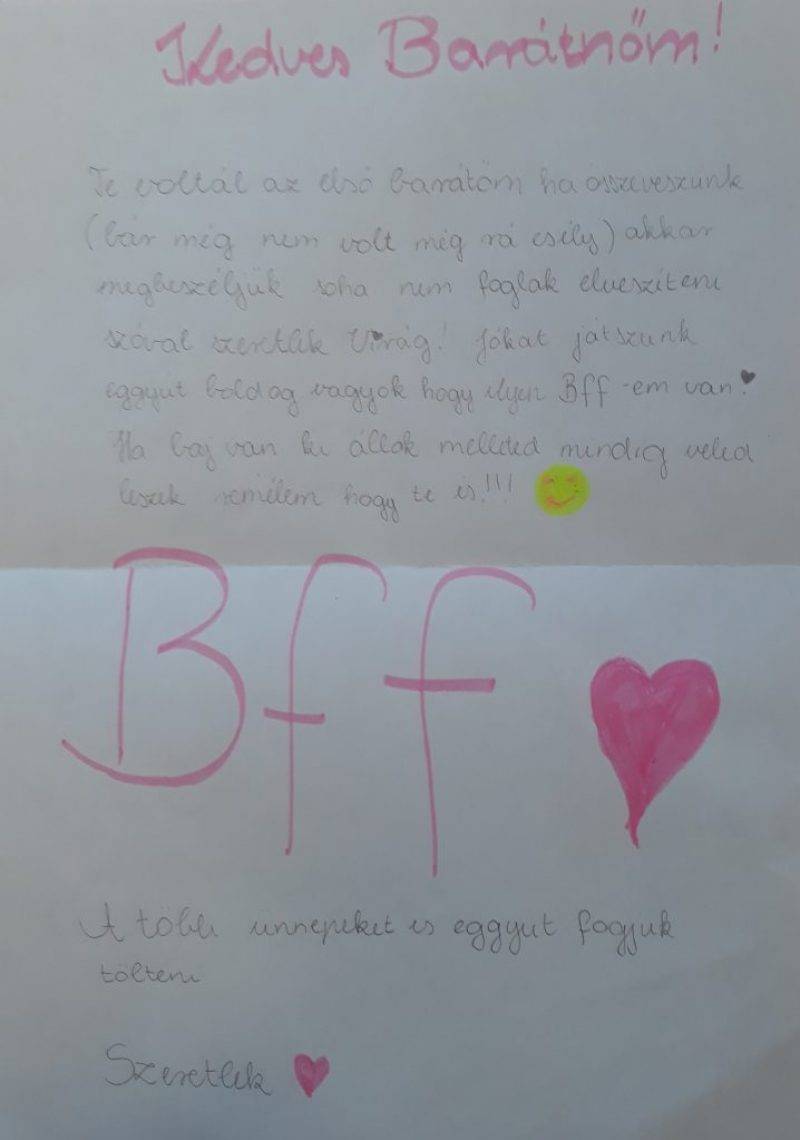 Kedves Barátnőm!
Te voltál az első barátom ha összeveszunk
(bár még nem volt még rá esély) akkar
megbeszéljük soha nem foglak elveszíteni
szóval szeretlek Virág! Jókat játszunk
eggyüt boldog vagyok hogy ilyen Bff-em van!
Ha baj van ki állok melleted mindig veled
leszek remélem hogy te is!!!
Bff
A többi ünnepeket is eggyut fogjuk
tölteni
Szeretlek